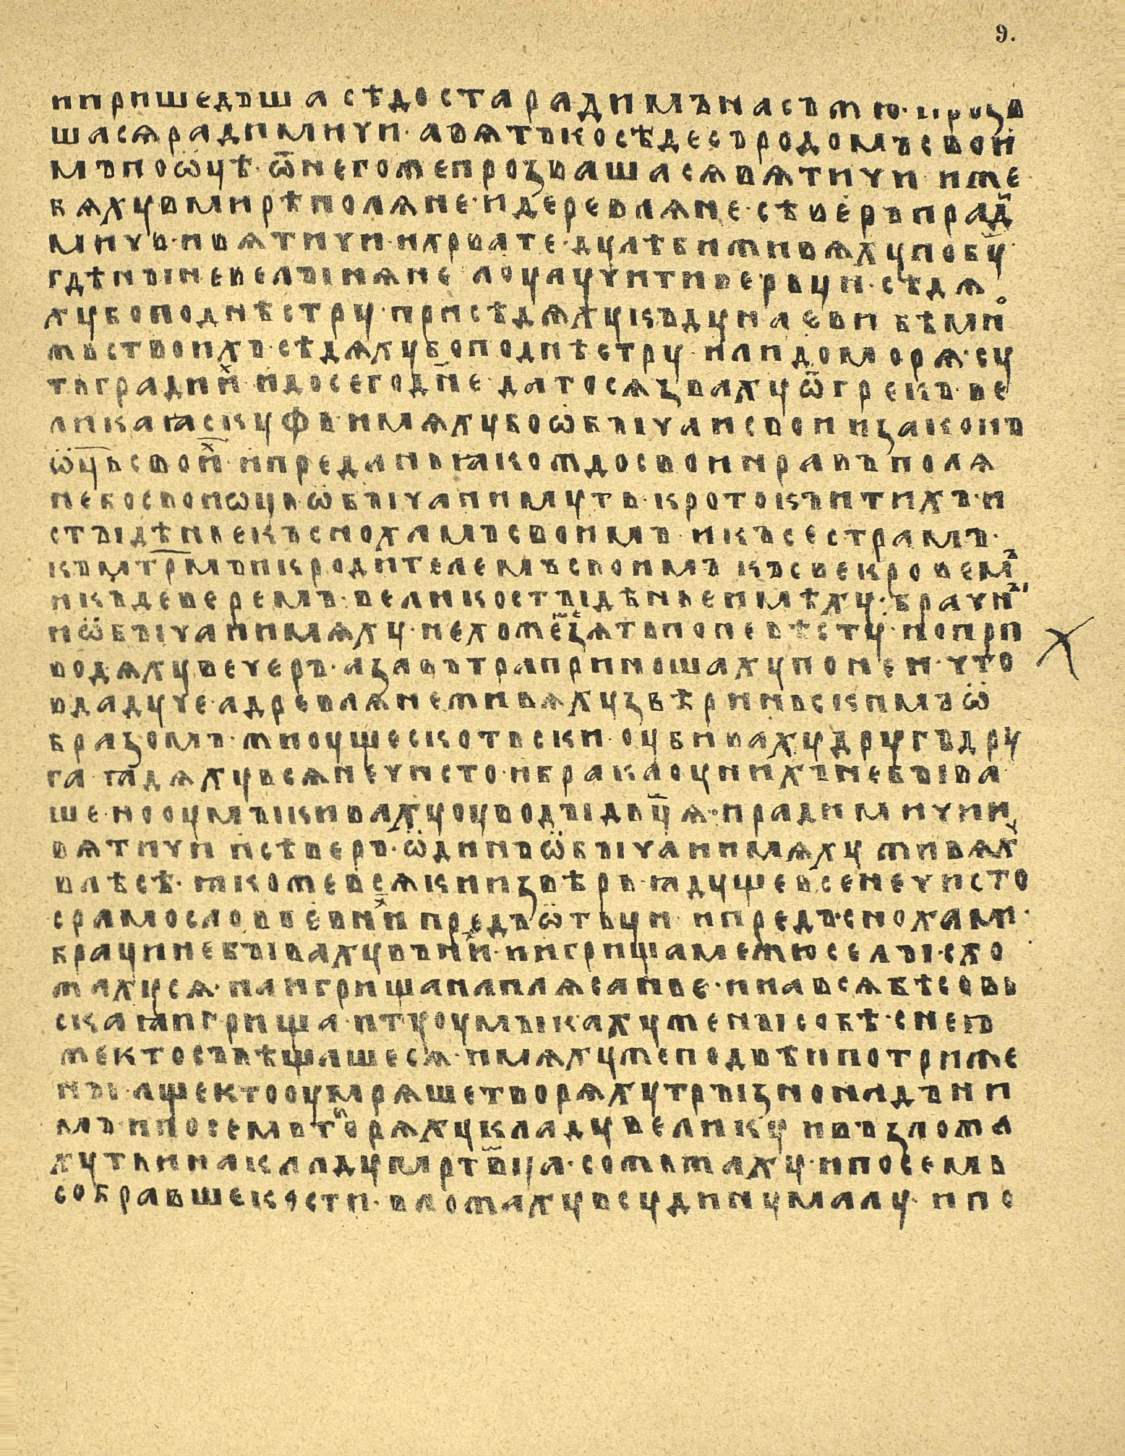 9.
ипришедъша сѣдоста радимъ на съжю · прозъ
шася радимичи · авятъко сѣдесъродомъсвои
мъпоѡцѣ · ѿнегожепрозъвашасявятичи · иже
бяхувмирѣполяне · идеревляне · сѣверъиради
мичь · ивятичи · ихрвате · дулѣбиживяхупобу
гдѣнъіневелъіняне лоуаучитиверьци · сѣдя
хубоподнѣстру · присѣдяхукъдунаеви бѣмно
жьствоихъ · сѣдяхубоподнѣстру илидоморя · су
тьгради · их идосегодн҃е датосязваху ѿ грекъ ве
ликаꙗскуфь · имяхубоѡбъічаисвои изаконъ
ѡц҃ьсвоих ипреданьꙗкождосвоинравъполя
небосвоиѡць ѡбъічаимуть · кротокъитихъ · и
стъідѣньекъснохамъсвоимъ икъсестрамъ ·
къмтр҃мъикродителемъсвоимъ късвекровемъ
икъдеверемъ · великостъідѣньеимѣху · брачн
иѡбъічаиимяху · нехожешезятьпоневѣсту · нопри
водяхувечеръ · азавътраприношахупонеи · что
вдадуче · адревлянеживяхузвѣриньскимъѡ
бразомъ · жиоущескотьски · оубивахудругъдру
га ꙗдяхувсянечисто · ибраклоунихънебъіва
ше · нооумъікивахуоуводъідв҃ця · ирадимичии
вятичи исѣверъ · ѡдинъѡбъічаиимяху живях
влѣсѣ · ꙗкожевсякиизвѣрь · ꙗдущевсенечисто
срамословьевнихъ предъѡтьци ипредъснохами ·
брациинебъівахувънихъ · ниигрищамежюселъі · схо
жахуся · наигрищанаплясанье · инавсябѣсовь
скаꙗигрища · итуоумъікахуженъісобѣ · снею
жектосъвѣщашеся · имяхужеподвѣипотриже
нъі · ащектооумряшетворяхутръізнонадъни
мъ ипосемьтворяхукладувелику ивъзложа
хутьинакладумртв҃ца · сожьжаху · ипосемь
собравшекости · вложахувсудинумалу · ипо